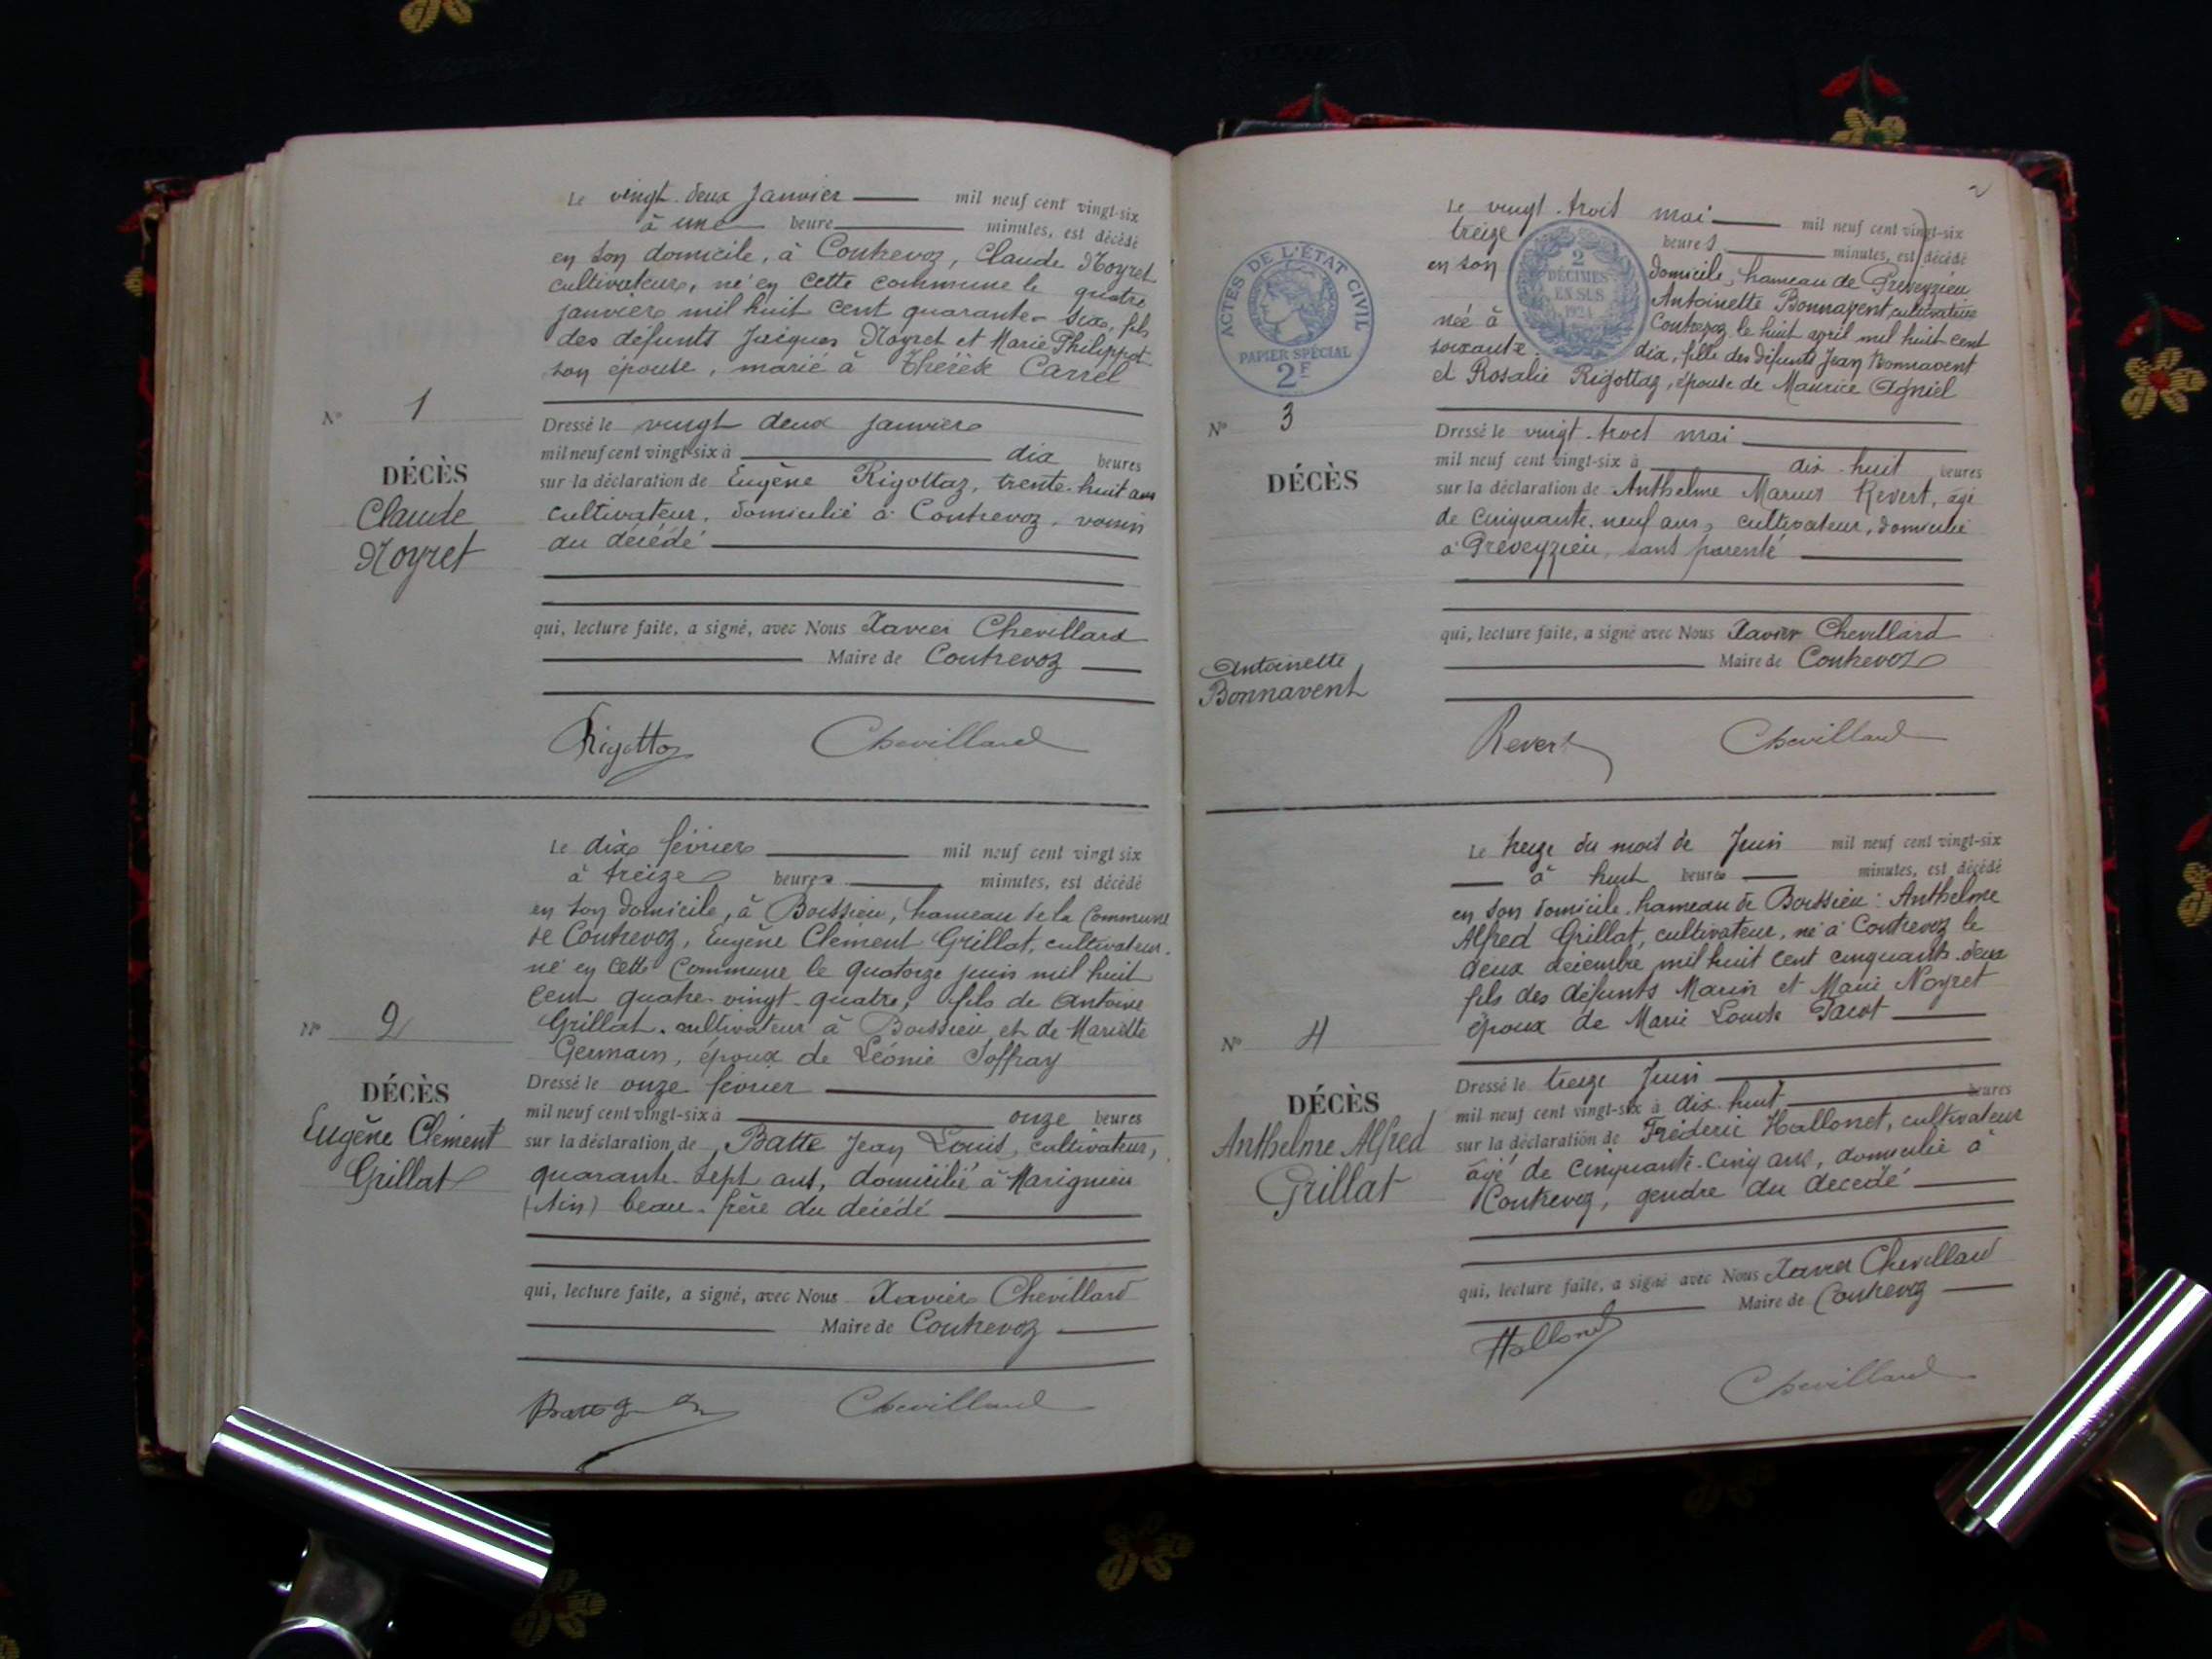 Le vingt-deux Janvier mil neuf cent vingt-six
à une heure minutes, est décédé
en son domicile, à Contrevoz, Claude Noyret
cultivateur, né en cette commune le quatre
janvier mil huit cent quarante-six, fils
des défunts Jacques Noyret et Marie Philippot
son épouse, marié à Thérèse Carrel
N° 1
DÉCÈS
Claude
Noyret
Dressé le vingt deux janvier
mil neuf cent vingt-six à dix heures
sur la déclaration de Eugène Rigottaz, trente-huit ans
cultivateur, domicilié à Contrevoz, voisin
du décédé
qui, lecture faite, a signé, avec Nous Xavier Chevillard
Maire de Contrevoz
Rigottaz Chevillard
Le dix février mil neuf cent vingt six
à treize heures minutes, est décédé
en son domicile, à Boissieu, hameau de la Commune
de Contrevoz, Eugène Clément Grillat, cultivateur.
né en cette Commune le quatorze juin mil huit
cent quatre-vingt-quatre, fils de Antoine
Grillat, cultivateur à Boissieu et de Mariette
Germain, époux de Léonie Joffray
N° 2
DÉCÈS
Eugène Clément
Grillat
Dressé le onze février
mil neuf cent vingt-six à onze heures
sur la déclaration de Batte Jean Louis, cultivateur,
quarante-sept ans, domicilié à Marignieu
(Ain) beau-frère du décédé
qui, lecture faite, a signé, avec Nous Xavier Chevillard
Maire de Contrevoz
Chevillard
2
Le vingt-trois mai mil neuf cent vingt-six
treize heures minutes, est décédé
en son domicile, hameau de Preveyzieu
Antoinette Bonnavent cultivatrice
née à Contrevoz le huit avril mil huit cent
soixante-dix, fille des défunts Jean Bonnavent
et Rosalie Rigottaz, épouse de Maurice Agniel
ACTES DE L'ÉTAT CIVIL
PAPIER SPÉCIAL
2F
2
DÉCIMES
EN SUS
1924
N° 3
DÉCÈS
Antoinette
Bonnavent
Dressé le vingt-trois mai
mil neuf cent vingt-six à dix-huit heures
sur la déclaration de Anthelme Marius Revert, âgé
de cinquante-neuf ans, cultivateur, domicilié
à Preveyzieu, sans parenté
qui, lecture faite, a signé avec Nous Xavier Chevillard
Maire de Contrevoz
Revert Chevillard
Le treize du mois de Juin mil neuf cent vingt-six
à huit heures minutes, est décédé
en son domicile hameau de Boissieu : Anthelme
Alfred Grillat, cultivateur, né à Contrevoz le
deux décembre mil huit cent cinquante-deux
fils des défunts Marin et Marie Noyret
époux de Marie Louise Pacot
N° 4
DÉCÈS
Anthelme Alfred
Grillat
Dressé le treize Juin
mil neuf cent vingt-six à dix-huit heures
sur la déclaration de Fréderic Hallonet, cultivateur
âgé de cinquante-cinq ans, domicilié à
Contrevoz, gendre du décédé
qui, lecture faite, a signé avec Nous Xavier Chevillard
Maire de Contrevoz
Hallonet
Chevillard